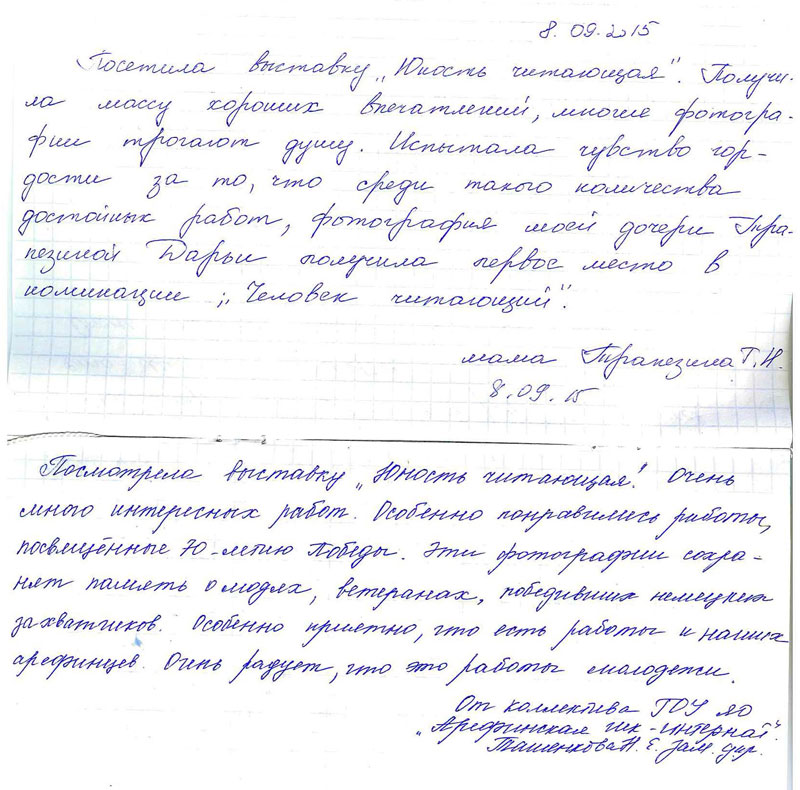 8.09.2015
Посетила выставку „Юность читающая". Получи-
ла массу хороших впечатлений, многие фотогра-
фии трогают душу. Испытала чувство гор-
дости за то, что среди такого количества
достойных работ, фотография моей дочери Тра-
пезиной Дарьи получила первое место в
номинации „Человек читающий".
мама Трапезина Т.Н.
8.09.15
Посмотрела выставку „Юность читающая". Очень
много интересных работ. Особенно понравились работы,
посвящённые 70-летию Победы. Эти фотографии сохра-
нят память о людях, ветеранах, победивших немецких
захватчиков. Особенно приятно, что есть работы и наших
арефинцев. Очень радует, что это работы молодежи.
От коллектива ГОУ ЯО
„Арефинская шк-интернат"
Ташенкова Н.Е. зам. дир.